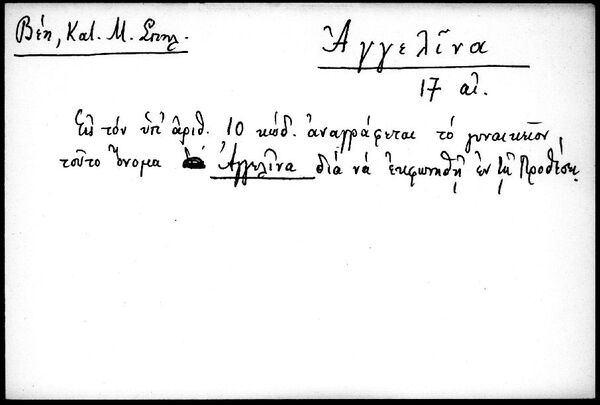 Βέη, Κατ. Μ. Σπηλ.
Ἀγγελῖνα
17 αἰ.
Εἰς τὸν ὑπ' ἀριθ. 10 κώδ. ἀναγράφεται τὸ γυναικεῖον
τοῦτο ὄνομα Ἀγγελῖνα διὰ νὰ ἐκφωνηθῇ ἐν τῇ Προθέσει.